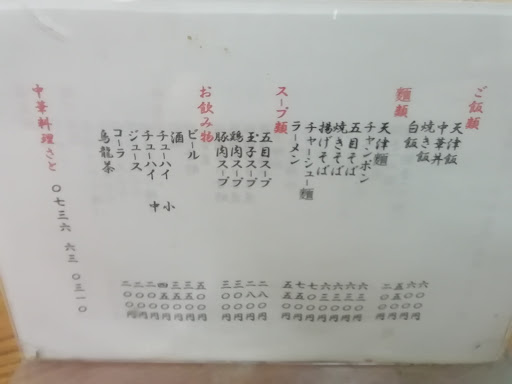 ご飯類
天津飯 六〇〇円
中華丼 六〇〇円
焼き飯 五五〇円
白飯 二〇〇円
麺類
天津麺
チャンポン
五目そば
焼きそば
揚げそば
チャーシュー麺
ラーメン 五五〇円
スープ類
五目スープ 二八〇円
玉子スープ 二八〇円
鶏肉スープ 三〇〇円
豚肉スープ 三〇〇円
お飲み物
ビール 五〇〇円
酒 三五〇円
チューハイ 小 三五〇円
チューハイ 中 四〇〇円
ジュース 二〇〇円
コーラ 二〇〇円
烏龍茶 二〇〇円
中華料理さと 〇七三六 六三 〇三一〇